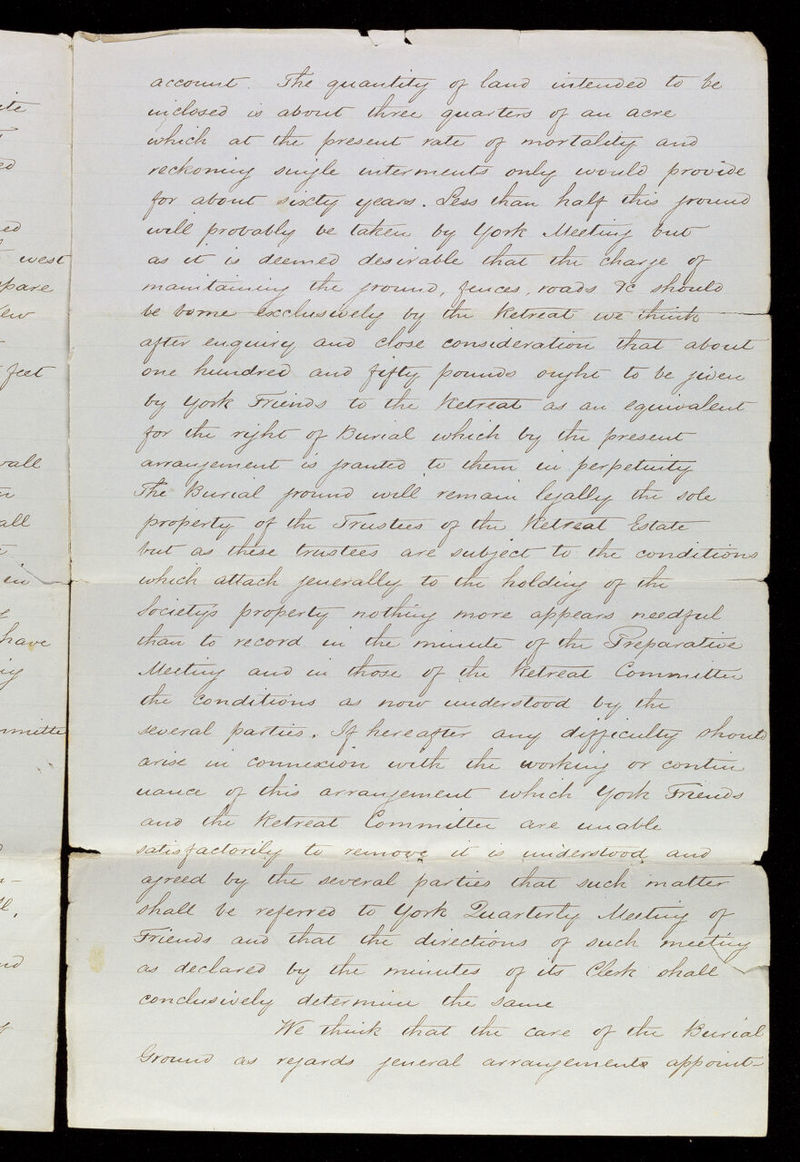 ite
ed
ed
west
pare
ew
feet
wall
all
in
have
mmitte
nd
account. The quantity of land intended to be
inclosed is about three quarters of an acre
which at the present rate of mortality and
reckoning single interments only would provide
for about sixty years. Less than half this ground
will probably be taken by York Meeting but
as it is deemed desirable that the charge of
maintaining the ground, fences, roads &c should
be borne exclusively by the Retreat we think
after enquiry and close consideration that about
one hundred and fifty pounds ought to be given
by York Friends to the Retreat as an equivalent
for the right of Burial which by the present
arrangement is granted to them in perpetuity
The Burial ground will remain legally the sole
property of the Trustees of the Retreat Estate
but as these trustees are subject to the conditions
which attach generally to the holding of the
Society's property nothing more appears needful
than to record in the minute of the Preparative
Meeting and in those of the Retreat Committee
the conditions as now understood by the
several parties. If hereafter any difficulty should
arise in connexion with the working or contin
uance of this arrangement which York Friends
and the Retreat Committee are unable
satisfactorily to remove it is understood and
agreed by the several parties that such matter
shall be referred to York Quarterly Meeting of
Friends and that the directions of such meeting
as declared by the minutes of its Clerk shall
conclusively determine the same
We think that the care of the Burial
Ground as regards general arrangements appoint-